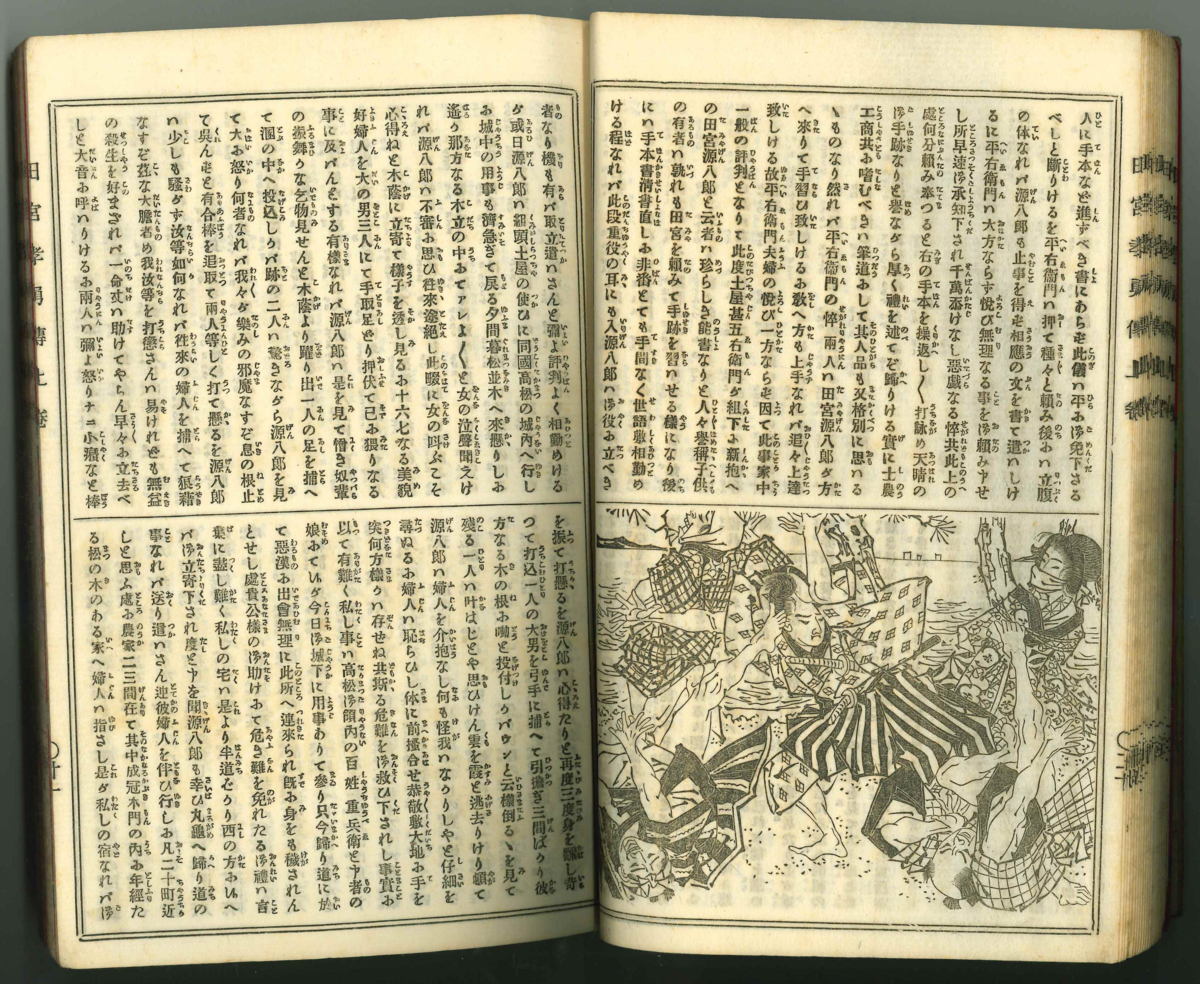 人に手本など進ずべき書にあらず此儀ハ平お御免下さる
べしと断りけるを平右衛門ハ押て種々と頼み後おハ立腹
の体なれバ源八郎も止事を得ず相應の文を書て遣ハしけ
るに平右衛門ハ大方ならず悦び無理なる事を御頼み申せ
し所早速御承知下され千萬忝けなし惡戯なる悴共此上の
處何分頼み奉つると右の手本を操返し〱打詠め天晴の
御手跡なりと譽ながら厚く禮を述てぞ歸りける實に士農
工商共お嗜むべきハ筆道おして其人品も又格別に思ハる
ゝものなり然れバ平右衛門の悴兩人ハ田宮源八郎が方
へ來りて手習ひ致しけるお敎へ方も上手なれバ追々上達
致しける故平右衛門夫婦の悦び一方ならず因て此事家中
一般の評判となりて此度土屋甚五右衛門が組下お新抱へ
の田宮源八郎と云者ハ珍らしき能書なりと人々譽稱子供
の有者ハ孰れも田宮を頼みて手跡を習ハせる樣になり後
にハ手本書淸書直しお非番とても手間なく世話敷相勤め
ける程なれバ此段重役の耳にも入源八郎ハ御役お立べき
者なり機も有バ取立遣ハさんと彌よ評判よく相勤めける
が或日源八郎ハ細頭土屋の使ひに同國高松の城内へ行し
お城中の用事も濟急ぎて戻る夕間暮松並木へ來懸りしお
遙か那方なる木立の中おてアレよ〱と女の泣聲聞えけ
れバ源八郎ハ不審お思ひ往來途絕し此暇に女の叫ぶこそ
心得ねと木蔭に立寄て樣子を透し見るお十六七なる美貌
好婦人を大の男三人にて手取足とり押伏て已お猥りなる
事に及バんとする有樣なれバ源八郎ハ是を見て憎き奴輩
の振舞かな乞物見せんと木蔭より躍り出一人の足を捕へ
て溷の中へ投込しかバ跡の二人ハ驚きながら源八郎を見
て大お怒り何者なれバ我々が樂みの邪魔なすぞ息の根止
て呉んずと有合棒を追取て兩人等しく打て懸るを源八郎
ハ少しも騷がず汝等如何なれバ往來の婦人を捕へて狼藉
なすぞ茲な大膽者め我汝等を打懲さんハ易けれども無益
の殺生を好まざれバ一命丈ハ助けてやらん早々お立去べ
しと大音お呼ハりけるお兩人ハ彌よ怒りナニ小癪なと棒
を振て打懸るを源八郎ハ心得たりと再度三度身を飜し寄
つて打込一人の大男を弓手に捕へて引擔ぎ三間ばかり彼
方なる木の根お噉と投付しかバウンと云樣倒るゝを見て
殘る一人ハ叶はじとや思ひけん雲を霞と逃去りけり頓て
源八郎ハ婦人を介抱なし何も怪我ハなかりしやと仔細を
尋ぬるお婦人ハ恥らひし体に前搔合せ恭敬敷大地お手を
突何方樣かハ存ぜね共斯る危難を御救ひ下されし事實お
以て有難く私し事ハ高松御領内の百姓重兵衛と申者の
娘おてハが今日御城下に用事ありて參り只今歸り道に於
て惡漢お出會無理に此所へ連來られ旣お身をも穢されん
とせし處貴公樣の御助けおて危き難を免れたる御禮ハ言
葉に盡し難く私しの宅ハ是より半道ばかり西の方おハへ
バ御立寄下され度と申を聞源八郎も幸ひ丸龜へ歸り道の
事なれバ送り遣ハさん迚彼婦人を伴ひ行しお凡二十町近
しと思ふ處お農家二三間在て其中成冠木門の内お年經た
る松の木のある家へ婦人ハ指さし是が私しの宿なれバ御
田宮孝勇傳上卷